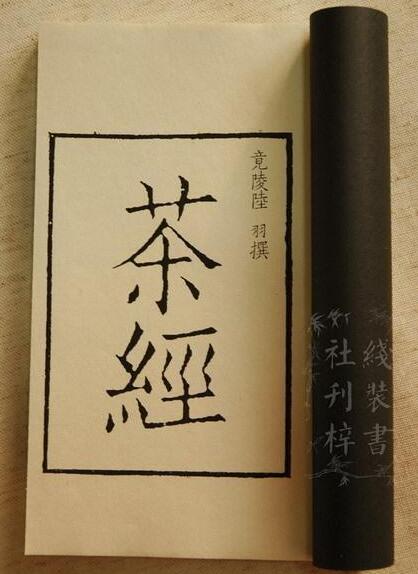 竟陵陸 羽撰
茶經
綫装書
社刊梓